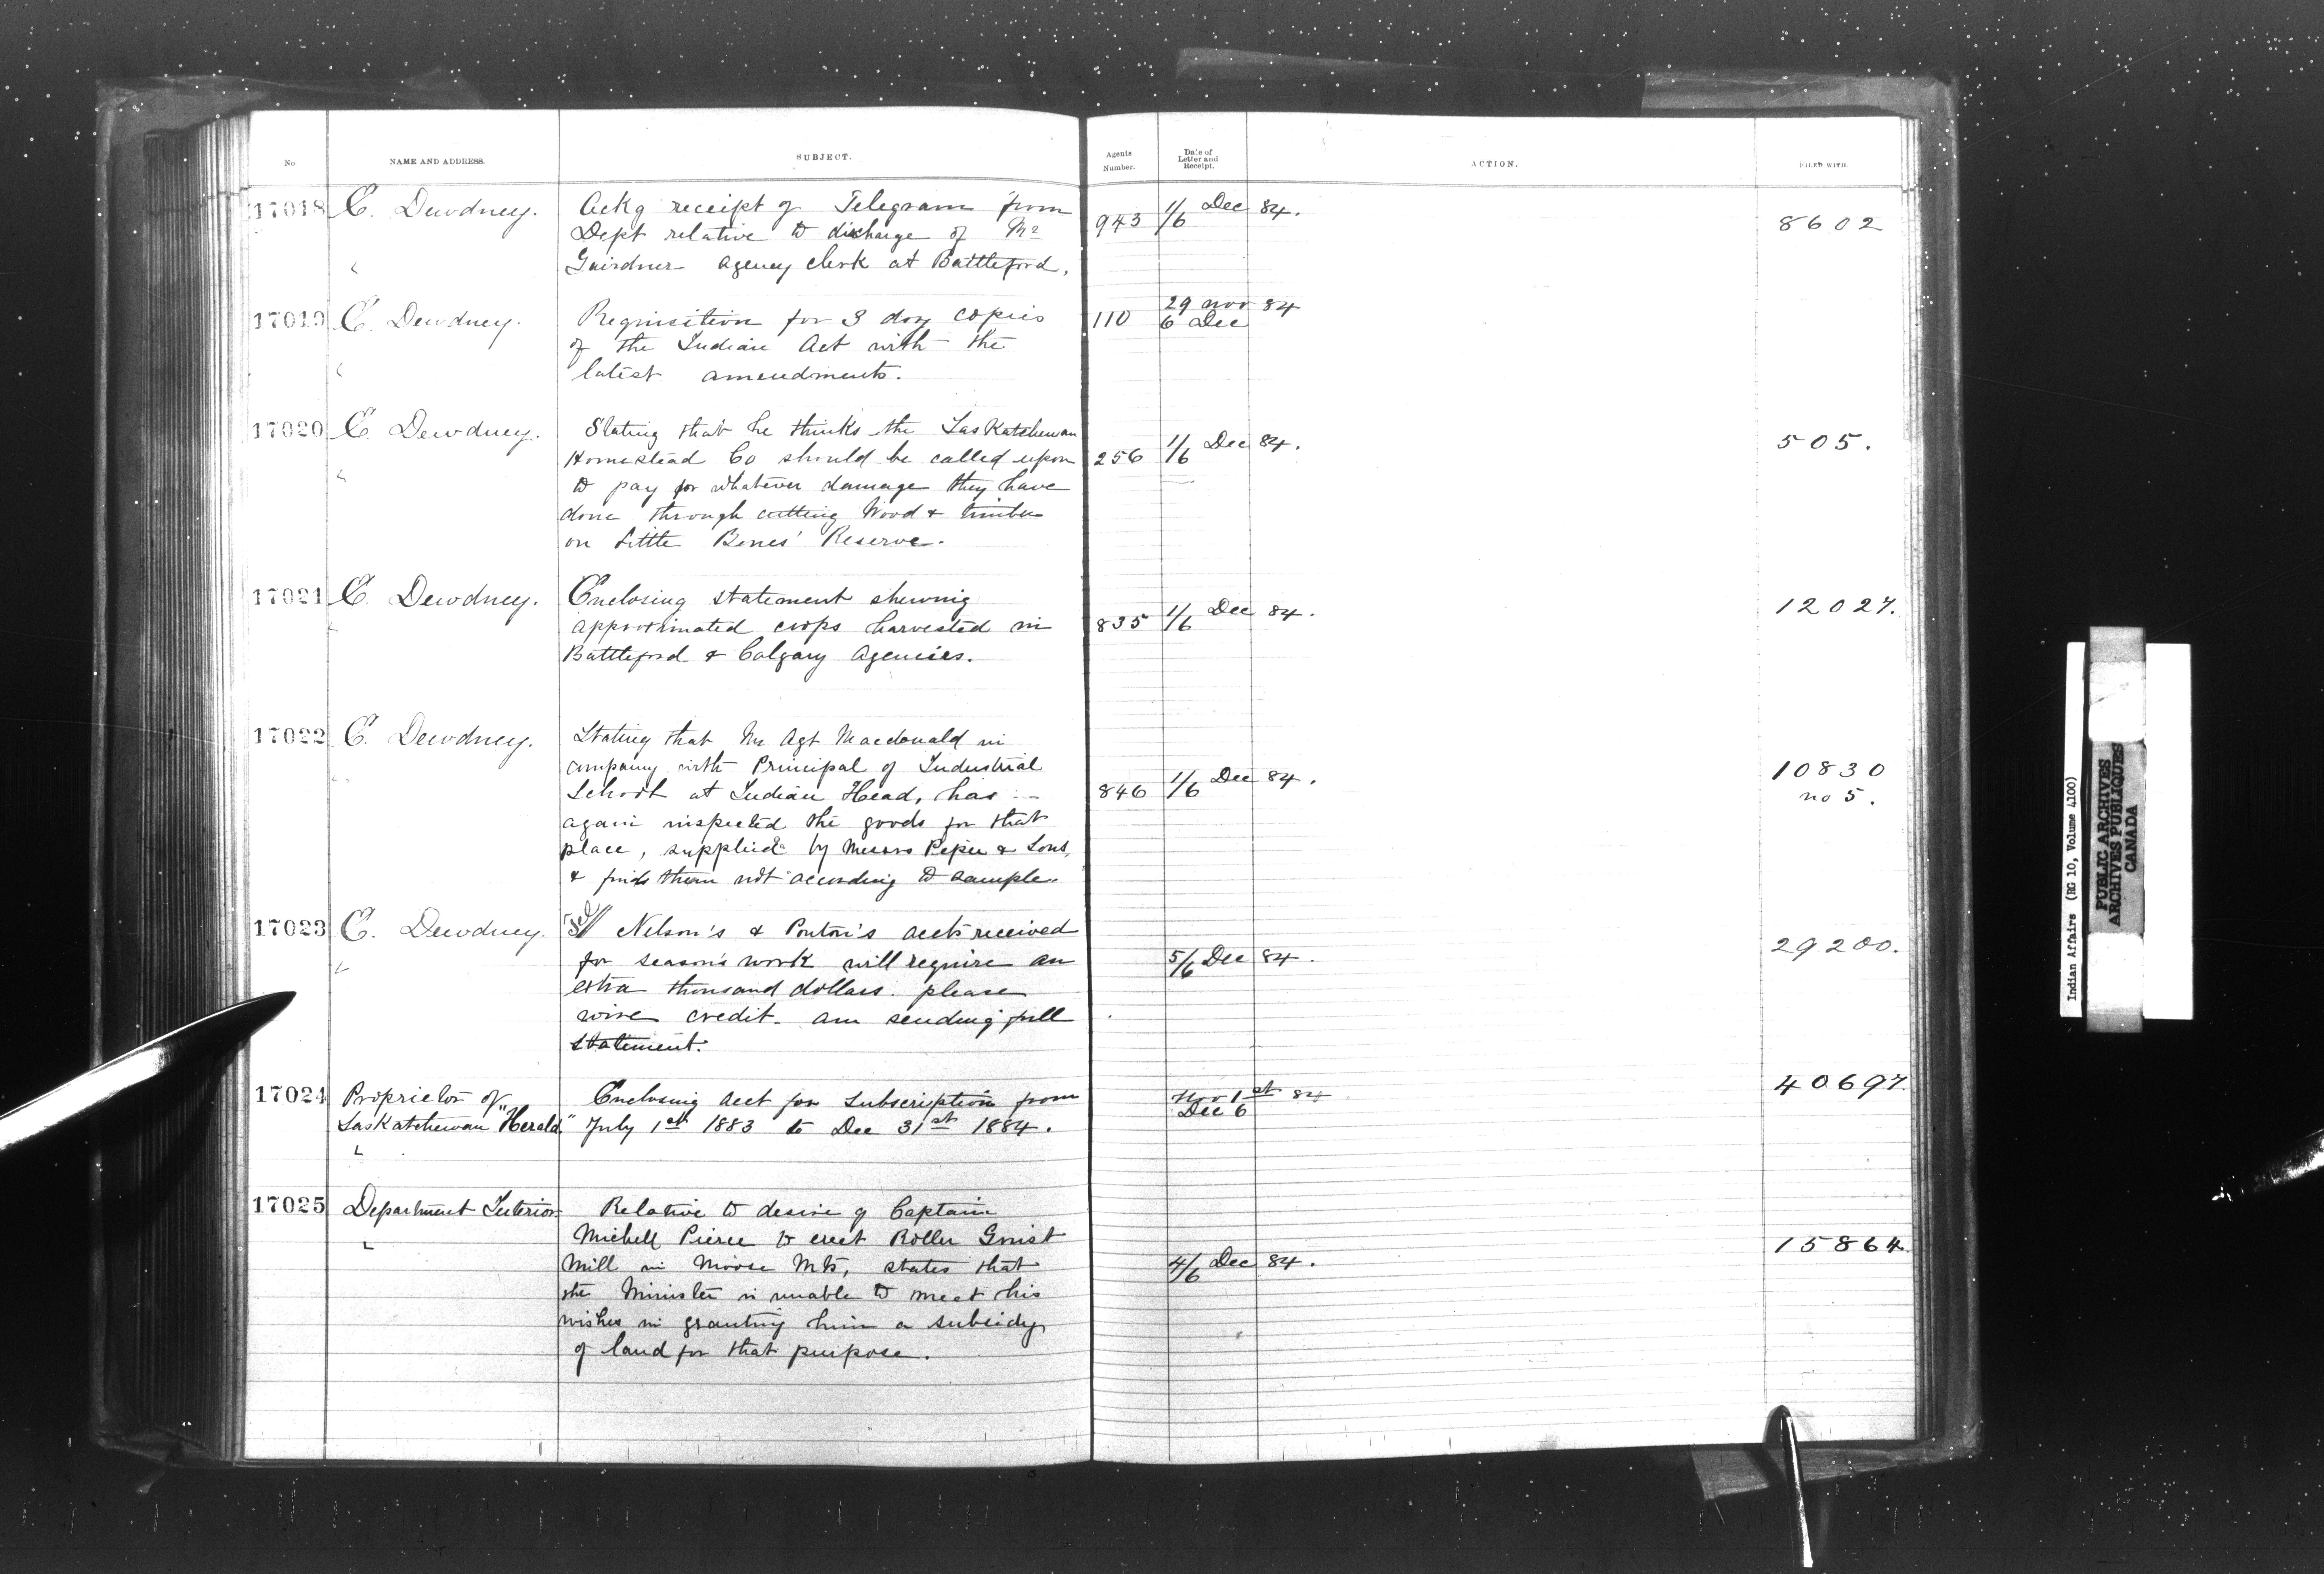 No. NAME AND ADDRESS. SUBJECT. Agents Number. Date of Letter and Receipt. ACTION. FILED WITH.
17018 E. Dewdney. Ackg receipt of Telegram from
Dept relative to discharge of Mr
Gairdner agency clerk at Battleford.
943 1/6 Dec 84. 8602
17019 E. Dewdney. Requisition for 3 doz copies
of the Indian Act with the
latest amendments.
110 29 Nov 84
6 Dec
17020 E. Dewdney. Stating that he thinks the Saskatchewan
Homestead Co should be called upon
to pay for whatever damage they have
done through cutting Wood & timber
on Little Bones' Reserve.
256 1/6 Dec 84. 505.
17021 E. Dewdney. Enclosing statement shewing
approximated crops harvested in
Battleford & Calgary Agencies.
835 1/6 Dec 84. 12027.
17022 E. Dewdney. Stating that Mr Agt Macdonald in
company with Principal of Industrial
School at Indian Head, has
again inspected the goods for that
place, supplied by Messrs Peper & Sons,
& finds them not according to sample.
846 1/6 Dec 84. 10830
no 5.
17023 E. Dewdney. Tel// Nelson's & Ponton's accts received
for season's work will require an
extra thousand dollars. please
wire credit. am sending full
statement.
5/6 Dec 84. 29200.
17024 Proprietor of
Saskatchewan "Herald"
Enclosing acct for subscription from
July 1st 1883 to Dec 31st 1884.
Nov 1st 84
Dec 6
40697.
17025 Department Interior Relative to desire of Captain
Michell Pierce to erect Roller Grist
Mill in Moose Mts, states that
the Minister is unable to meet his
wishes in granting him a subsidy
of land for that purpose.
4/6 Dec 84. 15864
Indian Affairs (RG 10, Volume 4100)
PUBLIC ARCHIVES
ARCHIVES PUBLIQUES
CANADA